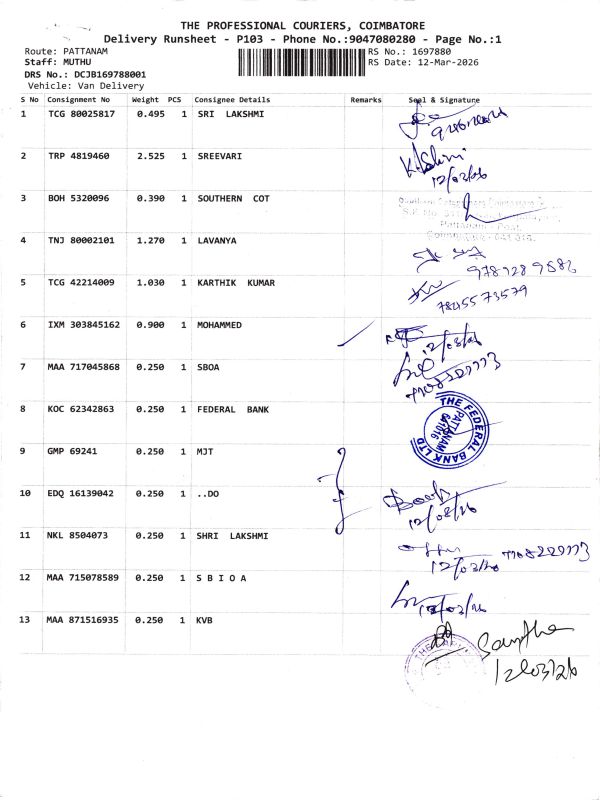 THE PROFESSIONAL COURIERS, COIMBATORE
Delivery Runsheet - P103 - Phone No.:9047080280 - Page No.:1
Route: PATTANAM
RS No.: 1697880
Staff: MUTHU
RS Date: 12-Mar-2026
DRS No.: DCJB169788001
Vehicle: Van Delivery
S No Consignment No Weight PCS Consignee Details Remarks Seal & Signature
1 TCG 80025817 0.495 1 SRI LAKSHMI
2 TRP 4819460 2.525 1 SREEVARI
12/03/26
3 BOH 5320096 0.390 1 SOUTHERN COT
4 TNJ 80002101 1.270 1 LAVANYA
5 TCG 42214009 1.030 1 KARTHIK KUMAR
7845573579
6 IXM 303845162 0.900 1 MOHAMMED
7 MAA 717045868 0.250 1 SBOA
8 KOC 62342863 0.250 1 FEDERAL BANK
THE FEDERAL BANK LTD
PATTANAM
641016
9 GMP 69241 0.250 1 MJT
10 EDQ 16139042 0.250 1 ..DO
12/03/26
11 NKL 8504073 0.250 1 SHRI LAKSHMI
12 MAA 715078589 0.250 1 S B I O A
13 MAA 871516935 0.250 1 KVB
12/03/26